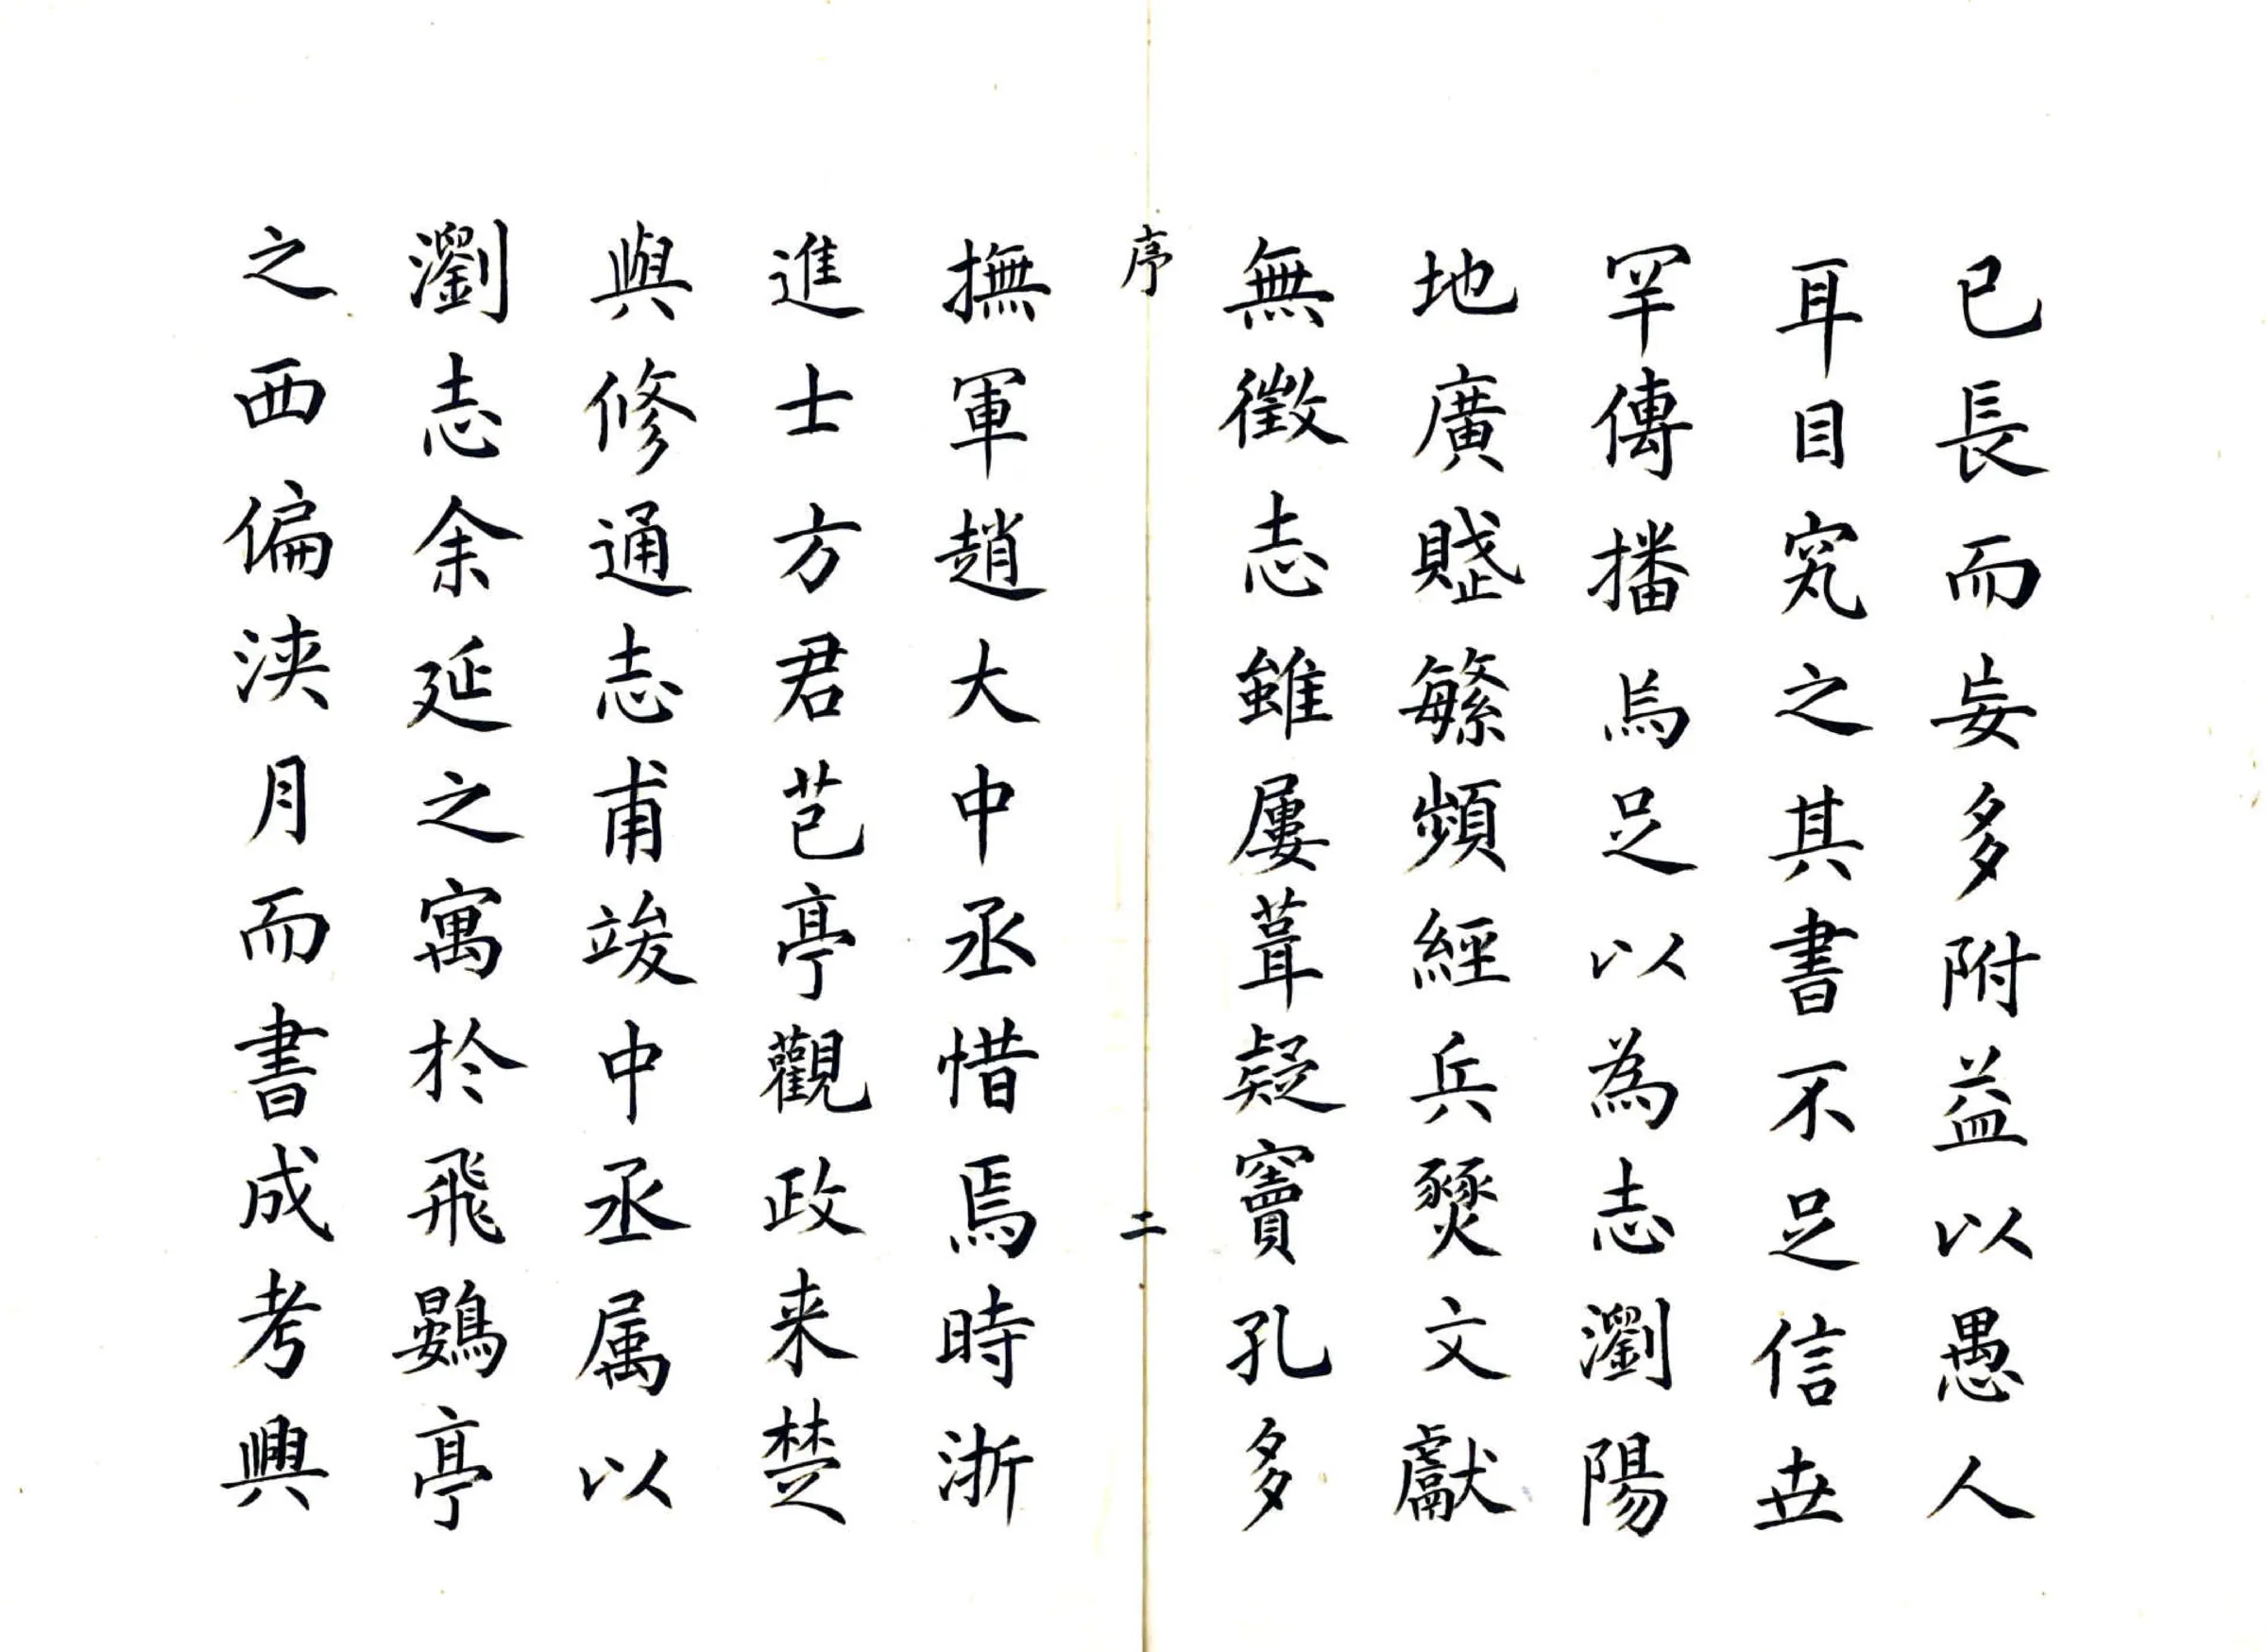 已長而妄多附益以愚人
耳目究之其書不足信世
罕傳播烏足以為志瀏陽
地廣賦繁頻經兵燹文獻
無徵志雖屢葺疑竇孔多
序
二
撫軍趙大中丞惜焉時浙
進士方君芑亭觀政来楚
與修通志甫竣中丞属以
瀏志余延之寓於飛鷃亭
之西偏浹月而書成考興